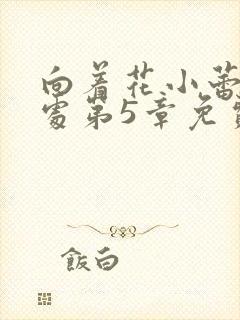 向着花小蕾
处第5章免
飯白